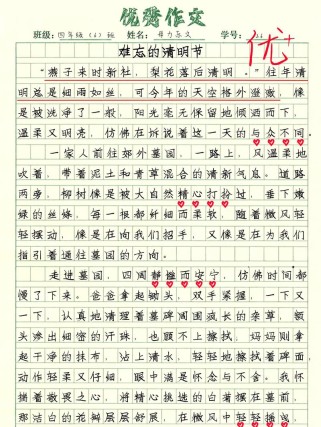 优秀作文
班级：四年级（6）班 姓名： 学号：
优+
难忘的清明节
“燕子来时新社，梨花落后清明。”往年清
明总是细雨如丝，可今年的天空格外澄澈，像
是被洗净了一般，阳光毫无保留地倾洒而下，
温柔又明亮，仿佛在诉说着这一天的与众不同。
一家人前往郊外墓园，一路上，风温柔地
吹着，带着泥土和青草混合的清新气息。道路
两旁，柳树像是被大自然精心打扮过，垂下嫩
绿的丝绦，每一根都纤细而柔软，随着微风轻
轻摆动，像是在向我们招手，又像是在为我们
指引着通往墓园的方向。
走进墓园，四周静谧而安宁，仿佛时间都
慢了下来。爸爸拿起锄头，双手紧握，一下又
一下，认真地清理着墓碑周围疯长的杂草，额
头渗出细密的汗珠，也顾不上擦拭，妈妈则拿
起干净的抹布，沾上清水，轻轻地擦拭着碑面，
动作轻柔又仔细，眼中满是怀念与不舍。我怀
揣着敬畏之心，将精心挑选的白菊摆在墓前，
那洁白的花瓣层层舒展，在微风中轻轻摇曳，